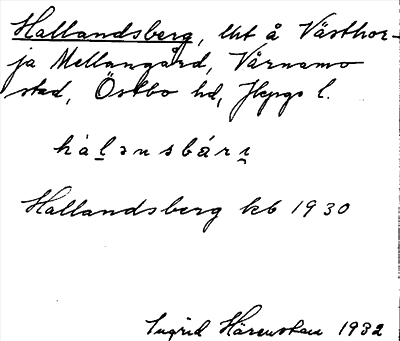 Hallandsberg, lht å Västhor-
ja Mellangård, Värnamo
stad, Östbo hd, Jkpgs l.
hàlənsbárı
Hallandsberg kb 1930
Ingrid Härenstam 1932